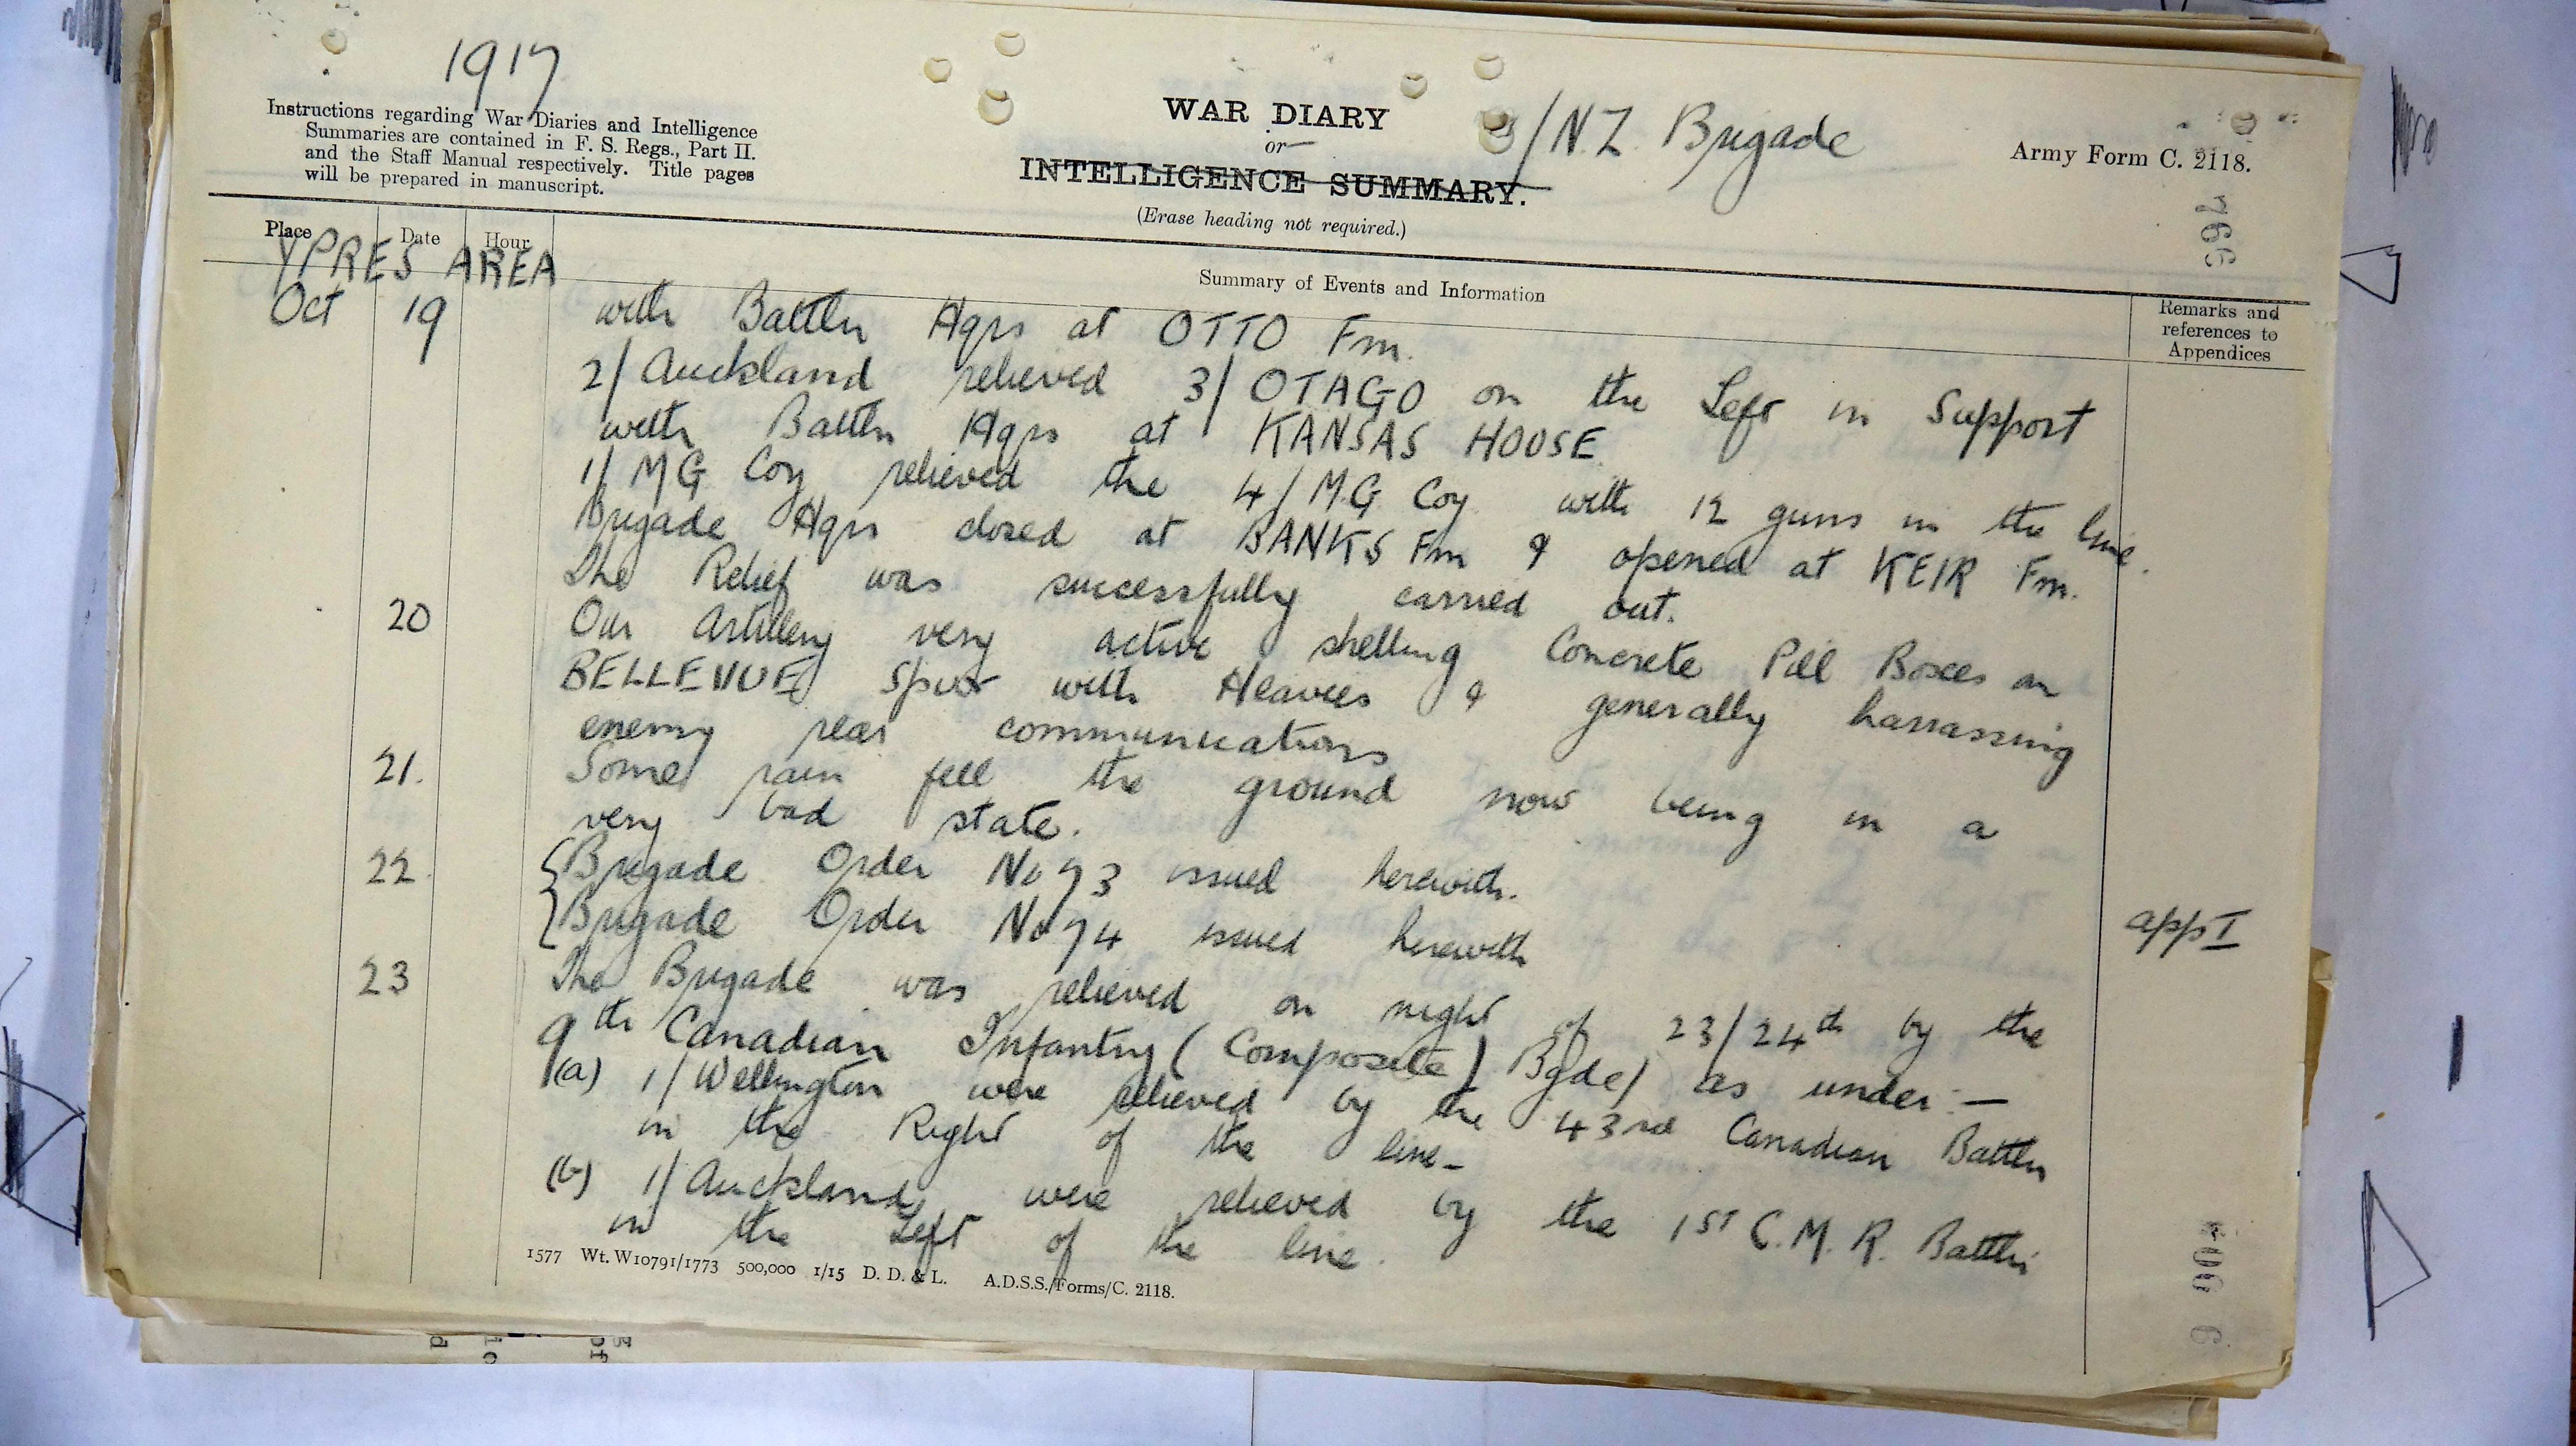 1917
Instructions regarding War Diaries and Intelligence
Summaries are contained in F. S. Regs., Part II.
and the Staff Manual respectively. Title pages
will be prepared in manuscript.
WAR DIARY
or
INTELLIGENCE SUMMARY.
(Erase heading not required.)
/N.Z. Brigade
Army Form C. 2118.
Place Date Hour
Summary of Events and Information
Remarks and
references to
Appendices
YPRES AREA
Oct 19 with Battln Hqrs at OTTO Fm.
2/Auckland relieved 3/OTAGO on the Left in Support
with Battln Hqrs at KANSAS HOUSE.
1/ MG Coy relieved the 4/M.G. Coy with 12 guns in the line.
Brigade Hqrs closed at BANKS Fm & opened at KEIR Fm.
The Relief was successfully carried out.
20 Our Artillery very active shelling Concrete Pill Boxes on
BELLEVUE Spur with Heavies & generally harrassing
enemy rear communications
21. Some rain fell the ground now being in a
very bad state.
22. {Brigade Order No 73 issued herewith.
}Brigade Order No 74 issued herewith
app I
23 The Brigade was relieved on night of 23/24th by the
9th Canadian Infantry (Composite) Bgde) as under:—
(a) 1/Wellington were relieved by the 43rd Canadian Battln
in the Right of the line-
(b) 1/Auckland were relieved by the 1ST C.M.R. Battln
in the Left of the line.
1577 Wt. W10791/1773 500,000 1/15 D. D. & L. A.D.S.S./Forms/C. 2118.